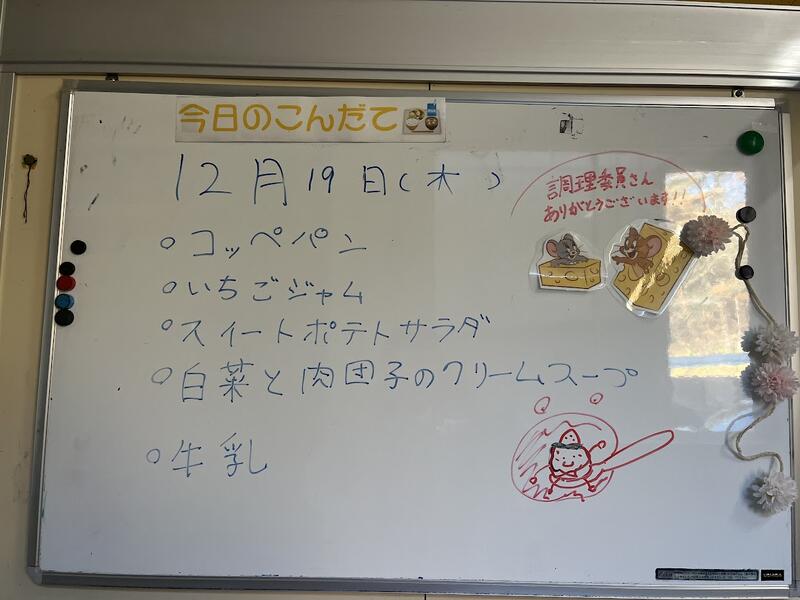 今日のこんだて
12月19日(木)
調理委員さん
ありがとうございます!!
○コッペパン
○いちごジャム
○スイートポテトサラダ
○白菜と肉団子のクリームスープ
○牛乳